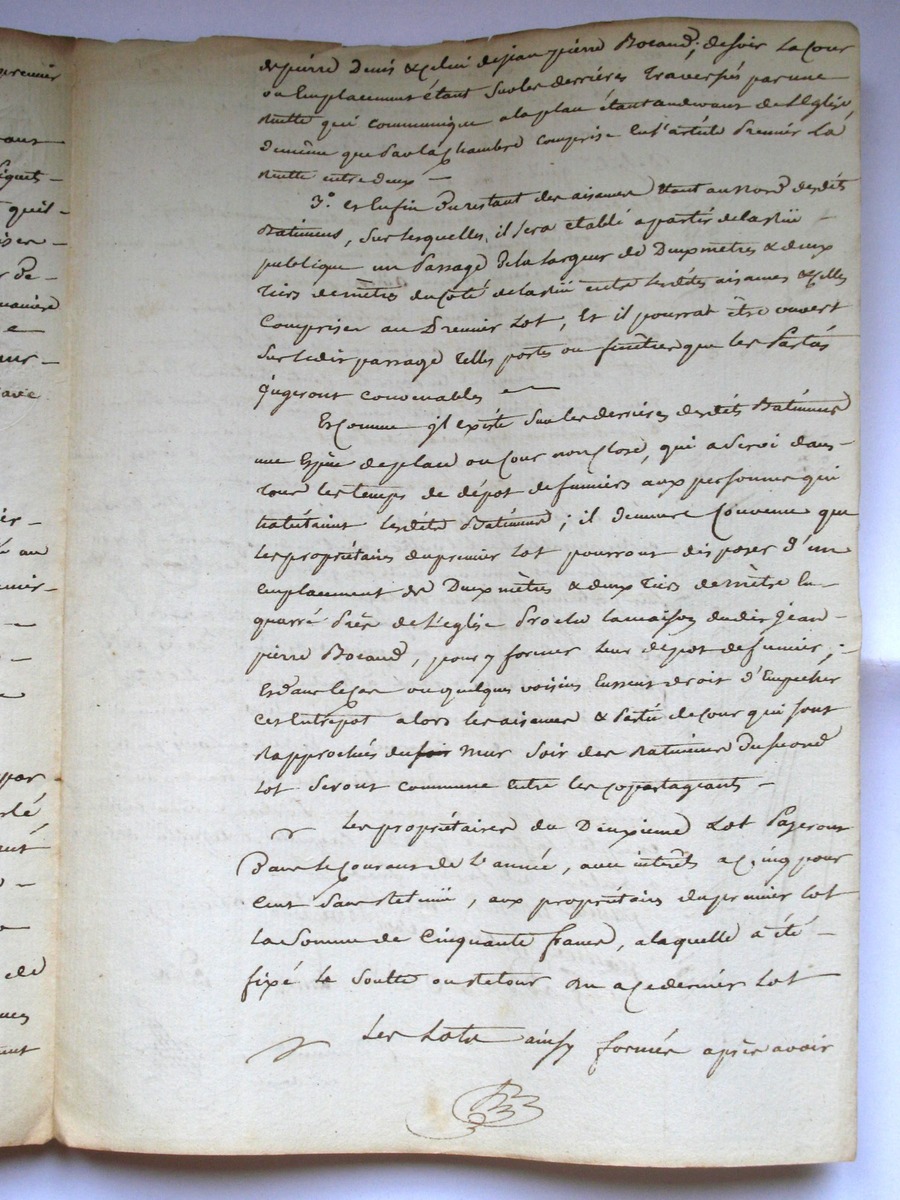 premier
de pierre Denis & celui de jean pierre Bocaud; desoir la Cour
ou Emplacement étant Sur les derriéres Traversés par une
Ruelle qui communique a la place étant audevant de L'Eglise,
demême que Sur la Chambre comprise En l'article Premier la
Ruelle entre deux —
3.° et Enfin Du restant des aisances étant au Nord desdits
Batimens, Sur lesquelles, il Sera établi a partir de la Rüe —
publique un Passage De la largeur de Deux metres & deux
Tiers de mètre du Coté de la Rüe entre lesdites aisances & Celles
Comprises au Premier Lot, Et il pourrat être ouvert
Sur ledit passage Telles portes ou fenêtres que les Parties
jugeront convenables —
Et Comme il existe Sur les derrieres desdits Batimens
une Espèce de place ou Cour non Close, qui a Servi dans —
tous les temps de dépot de fumiers aux personnes qui
habitaient lesdits Batimens; il demeure Convenu que
les propriétaires du premier Lot pourront disposer d'un
Emplacement de Deux mètres & deux Tiers de mètre En —
quarré Près de L'église Proche la maison dudit Jean —
pierre Bocaud, pour y former leur dépot de fumier; —
Et Dans le Cas ou quelques voisins Eussent droit d'Empecher
Cet Entrepot alors les aisances & Partie de Cour qui sont
Rapprochés du mur Soir des Batimens du Second
Lot Seront commune entre les copartageants —
Les propriétaires du Deuxieme Lot Payeront
Dans le Courant de L'année, avec intérêts a Cinq pour
Cent Sans Retenüe, aux propriétaires du premier Lot
La Somme de Cinquante francs, a laquelle a été —
fixé la Soulte ou Retour Du a ce dernier Lot
Les Lots ainsy formés après avoir